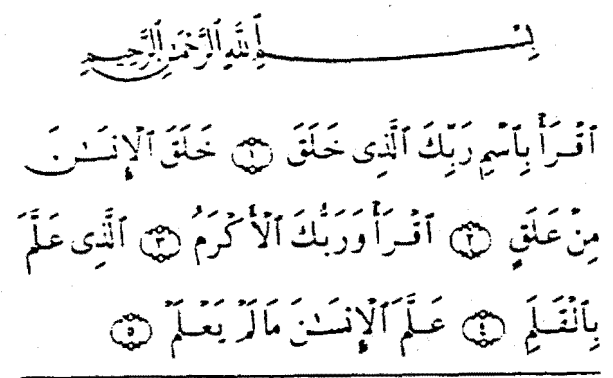 بِسْمِ ٱللَّهِ ٱلرَّحْمَٰنِ ٱلرَّحِيمِ
ٱقْرَأْ بِٱسْمِ رَبِّكَ ٱلَّذِى خَلَقَ ١ خَلَقَ ٱلْإِنسَٰنَ
مِنْ عَلَقٍ ٢ ٱقْرَأْ وَرَبُّكَ ٱلْأَكْرَمُ ٣ ٱلَّذِى عَلَّمَ
بِٱلْقَلَمِ ٤ عَلَّمَ ٱلْإِنسَٰنَ مَا لَمْ يَعْلَمْ ٥